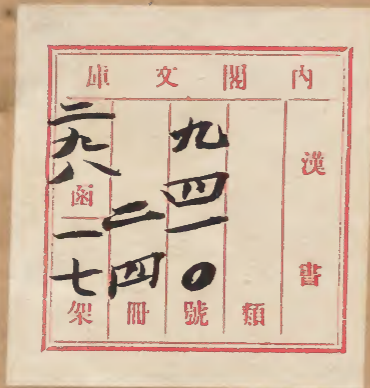 内閣文庫
漢書
類
九四一〇號
二四冊
二九八函
一七架